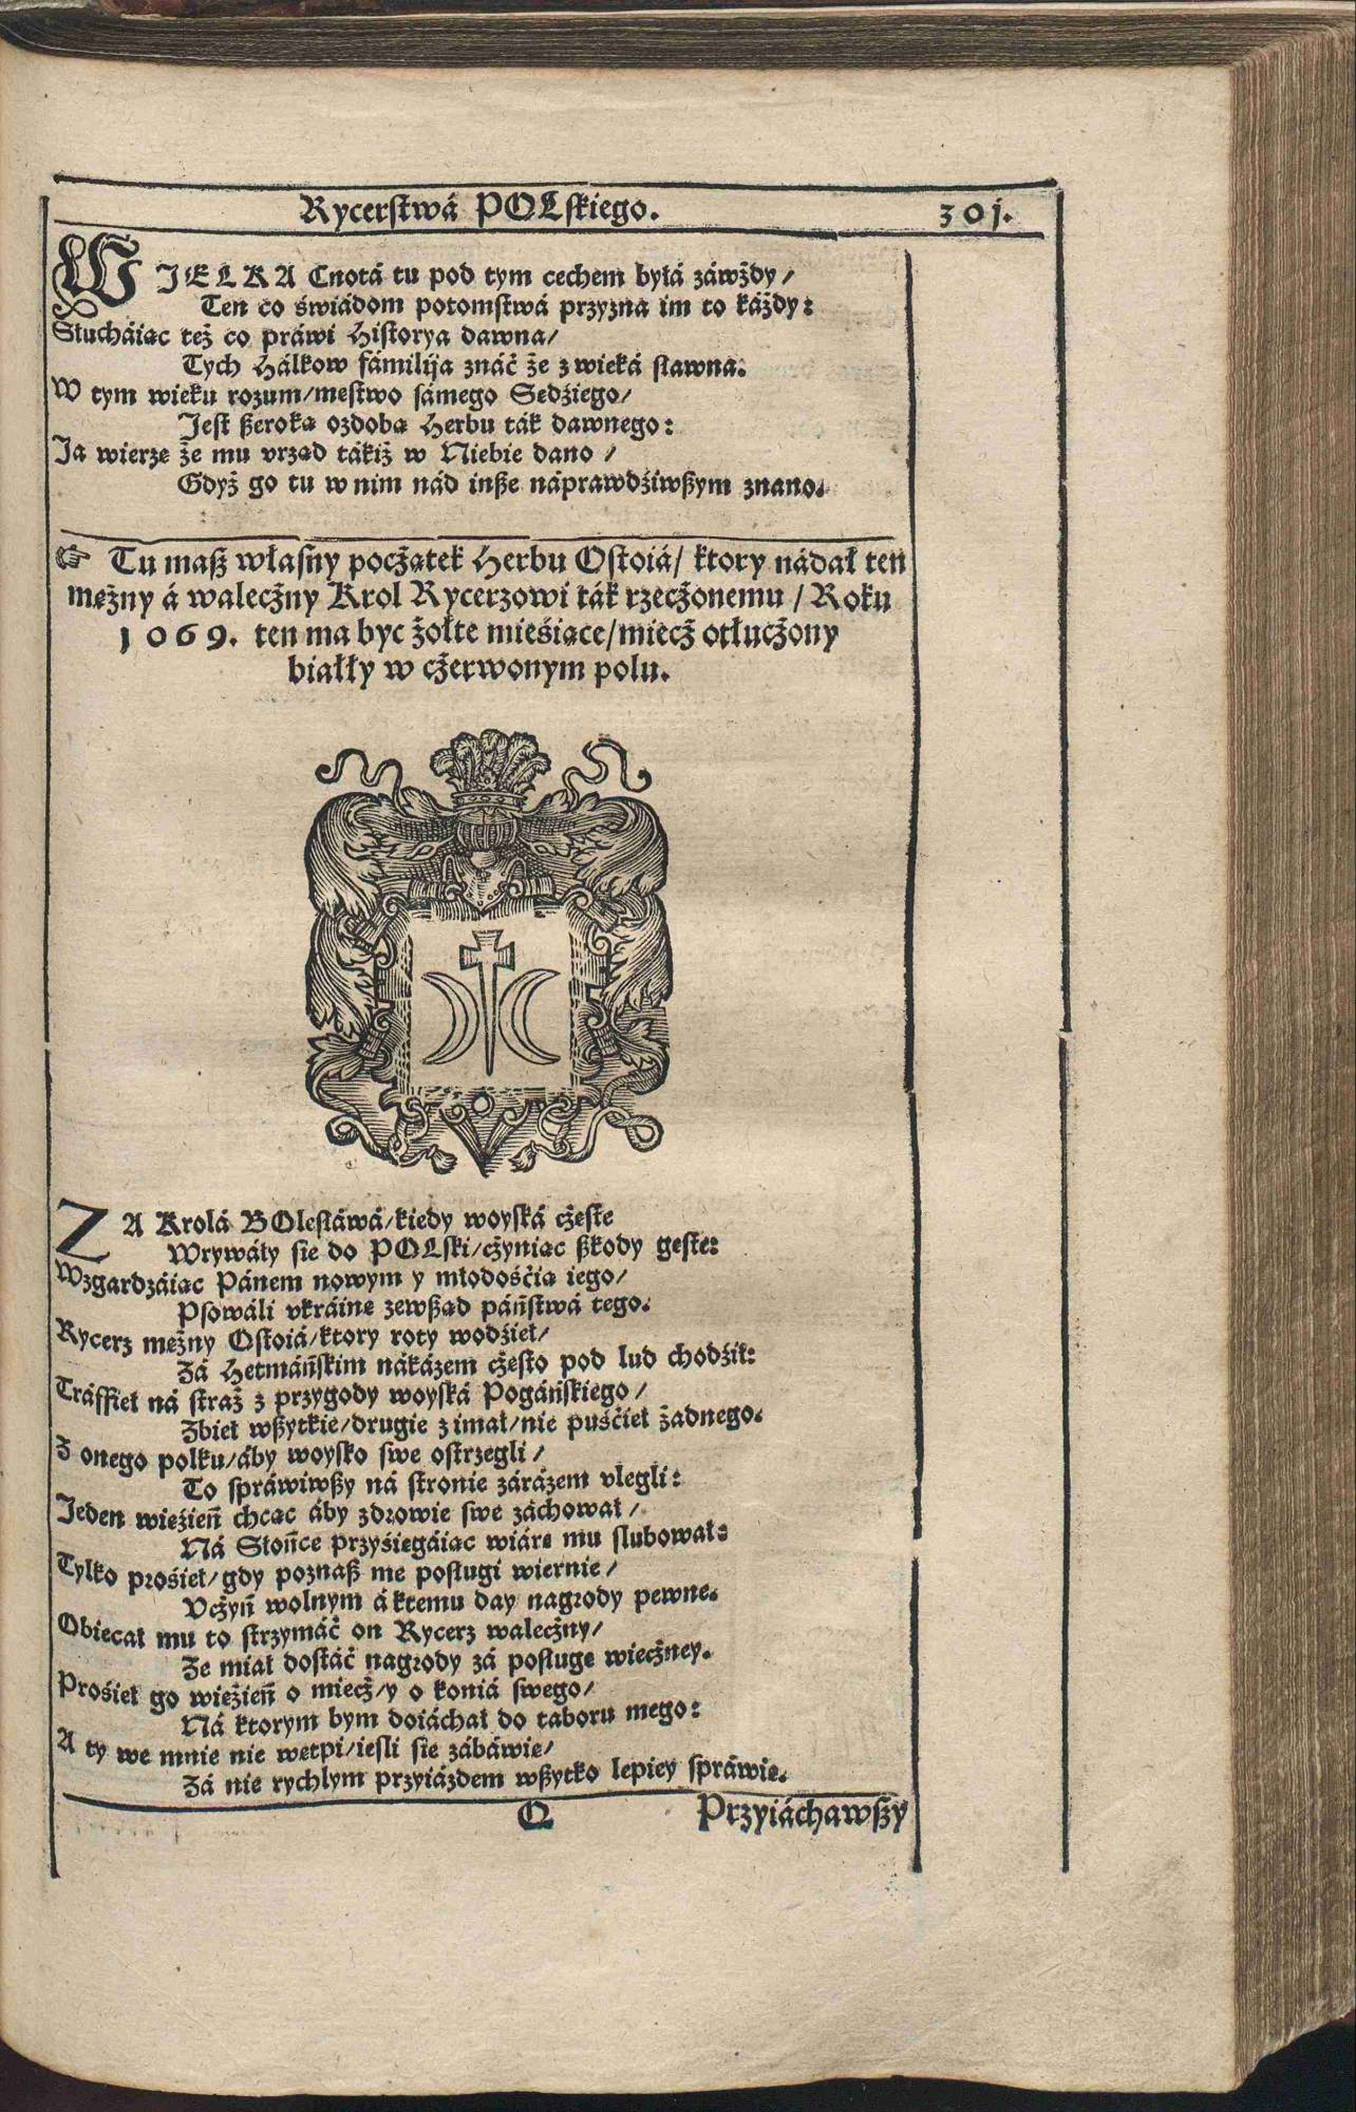 Rycerſtwá POLſkiego. 301.
WJELKA Cnotá tu pod tym cechem byłá záwżdy /
Ten co świádom potomſtwá przyzna im to káżdy:
Słucháiac też co práwi Hiſtorya dawna/
Tych Hálkow fámilija znáć że z wieká ſławna.
W tym wieku rozum/meſtwo ſámego Sedźiego/
Jeſt ßeroka ozdoba Herbu ták dawnego:
Ja wierze że mu vrzad tákiż w Niebie dano /
Gdyż go tu w nim nád inße náprawdźiwßym znano.
☞ Tu maß własny pocżątek Herbu Oſtoiá/ ktory nádał ten
mężny á walecżny Krol Rycerzowi ták rzecżonemu / Roku
1069. ten ma byc żołte mieśiące/miecż otłucżony
białły w cżerwonym polu.
ZA Krolá BOleſłáwá/kiedy woyſká cżeſte
Wrywáły ſie do POLſki/cżyniac ßkody geſte:
Wzgardzáiac Pánem nowym y młodośćia iego/
Pſowáli vkráine zewßad páńſtwá tego.
Rycerz meżny Oſtoiá/ktory roty wodźieł/
Zá Hetmáńſkim nákázem cżeſto pod lud chodźił:
Tráffieł ná ſtraż z przygody woyſká Pogáńſkiego /
Zbieł wßytkie/drugie z imał/nie puśćieł żadnego.
Z onego polku/áby woyſko ſwe oſtrzegli /
To ſpráwiwßy ná ſtronie zárázem vlegli:
Jeden wieźień chcac áby zdrowie ſwe záchował /
Ná Słońce przyśiegáiac wiáre mu ſlubował:
Tylko prośieł/gdy poznaß me poſługi wiernie /
Vcżyń wolnym á ktemu day nagrody pewne.
Obiecał mu to ſtrzymáć on Rycerz walecżny/
Ze miał doſtáć nagrody zá poſługe wiecżney.
Prośieł go wieźień o miecż/y o koniá ſwego/
Ná ktorym bym doiáchał do taboru mego:
A ty we mnie nie wetpi/ieſli ſie zábáwie/
Zá nie rychlym przyiázdem wßytko lepiey ſpráwie.
Q Przyiáchawßy